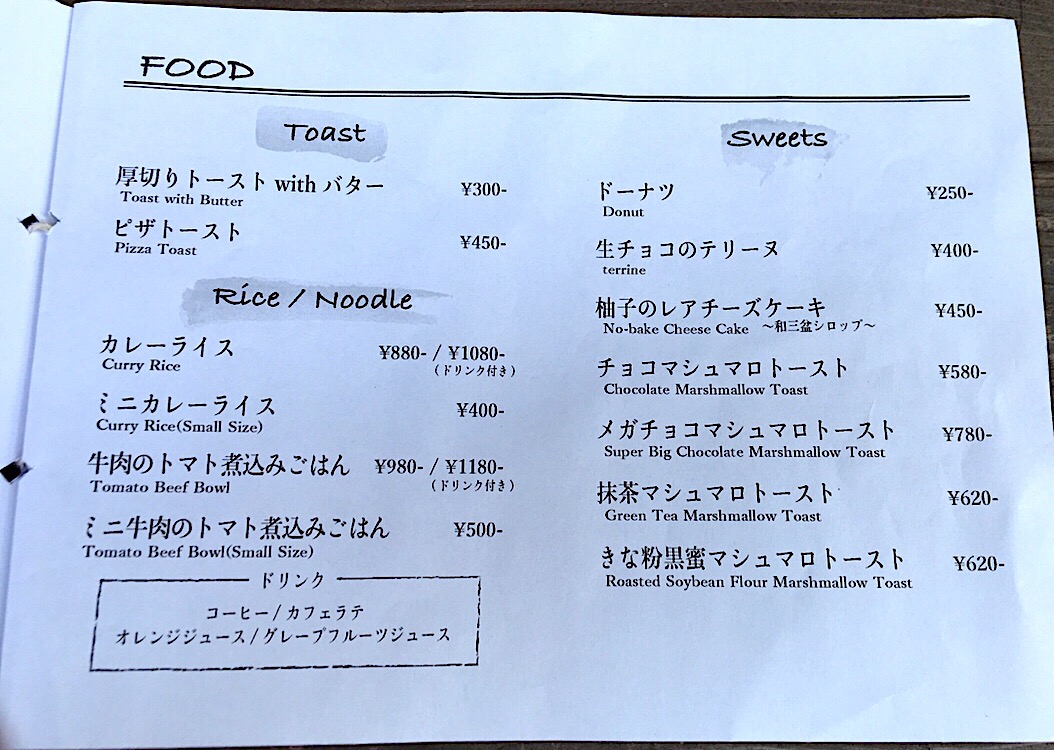 FOOD
Toast
厚切りトースト with バター ¥300-
Toast with Butter
ピザトースト ¥450-
Pizza Toast
Rice / Noodle
カレーライス ¥880- / ¥1080-
Curry Rice (ドリンク付き)
ミニカレーライス ¥400-
Curry Rice(Small Size)
牛肉のトマト煮込みごはん ¥980- / ¥1180-
Tomato Beef Bowl (ドリンク付き)
ミニ牛肉のトマト煮込みごはん ¥500-
Tomato Beef Bowl(Small Size)
ドリンク
コーヒー/カフェラテ
オレンジジュース/グレープフルーツジュース
Sweets
ドーナツ ¥250-
Donut
生チョコのテリーヌ ¥400-
terrine
柚子のレアチーズケーキ ¥450-
No-bake Cheese Cake ～和三盆シロップ～
チョコマシュマロトースト ¥580-
Chocolate Marshmallow Toast
メガチョコマシュマロトースト ¥780-
Super Big Chocolate Marshmallow Toast
抹茶マシュマロトースト ¥620-
Green Tea Marshmallow Toast
きな粉黒蜜マシュマロトースト ¥620-
Roasted Soybean Flour Marshmallow Toast